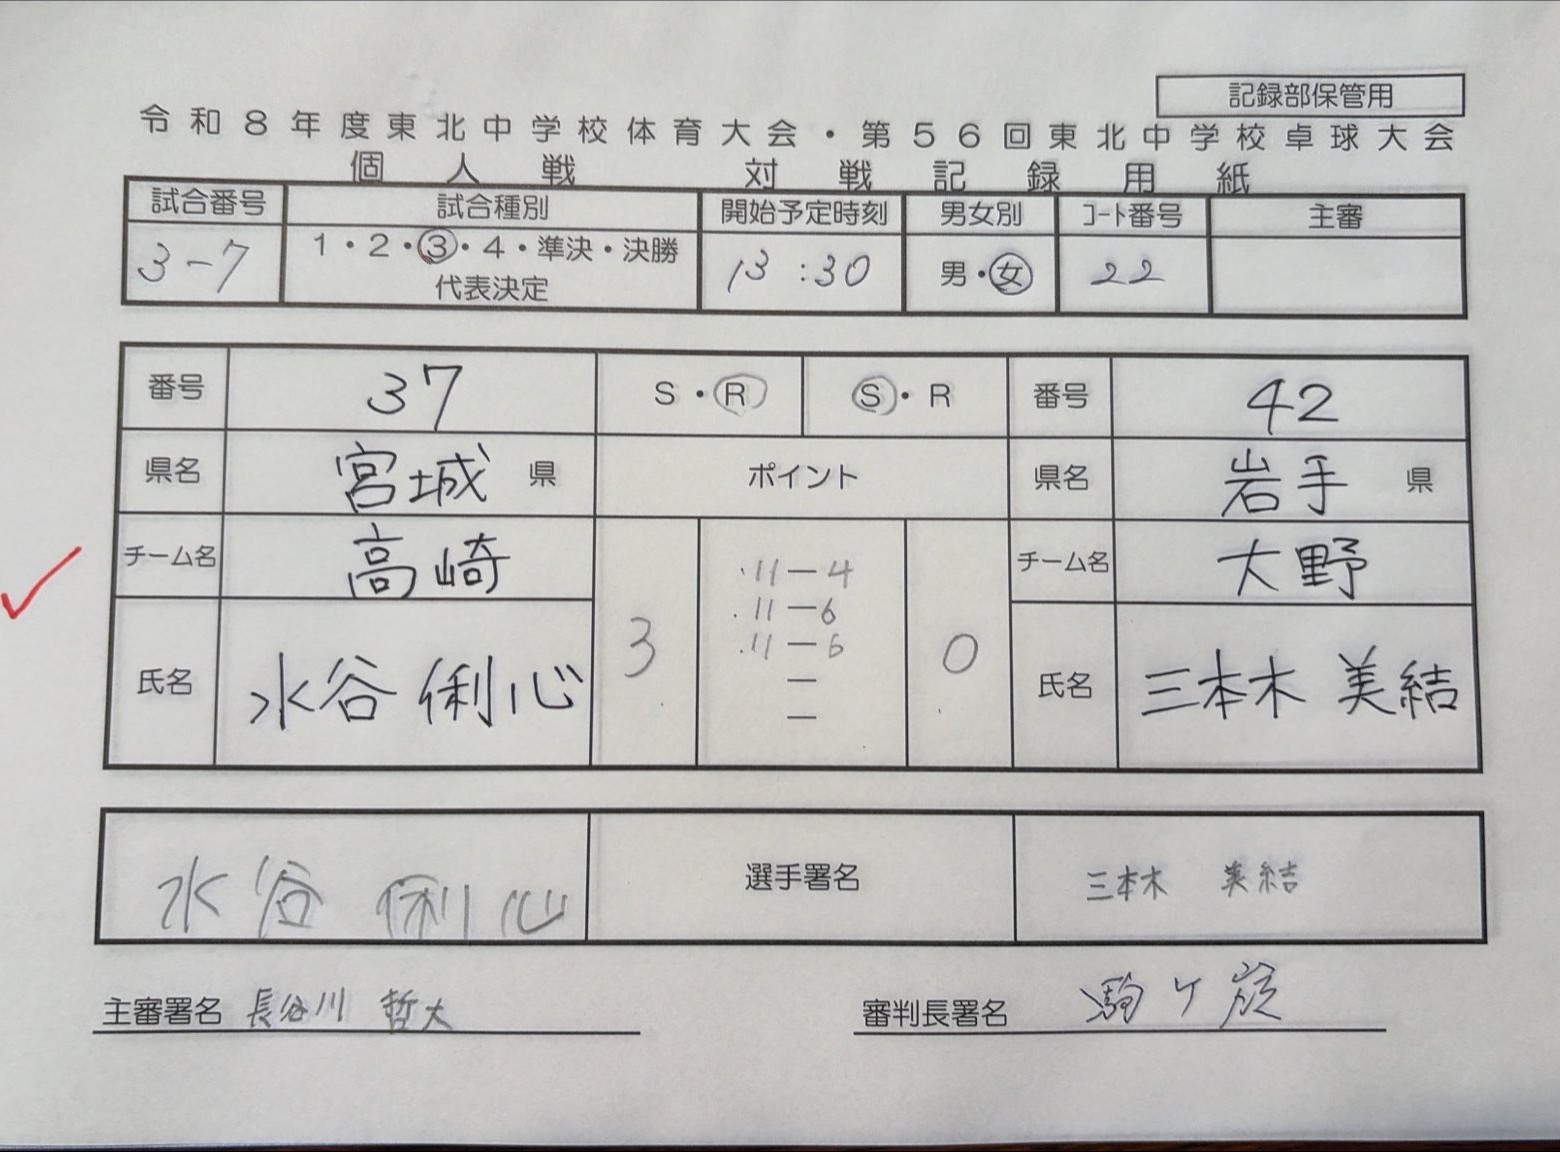 記録部保管用
令和8年度東北中学校体育大会・第56回東北中学校卓球大会
個人戦 対戦記録用紙
試合番号 試合種別 開始予定時刻 男女別 コート番号 主審
3-7 1・2・③・4・準決・決勝 13:30 男・女 22
代表決定
番号 37 S・R S・R 番号 42
県名 宮城 県 ポイント 県名 岩手 県
チーム名 高崎 チーム名 大野
11－4
11－6
11－6
－
－
氏名 水谷 俐心 3 0 氏名 三本木 美結
水谷 俐心 選手署名 三本木 美結
主審署名 長谷川 哲大 審判長署名 駒ケ嶺